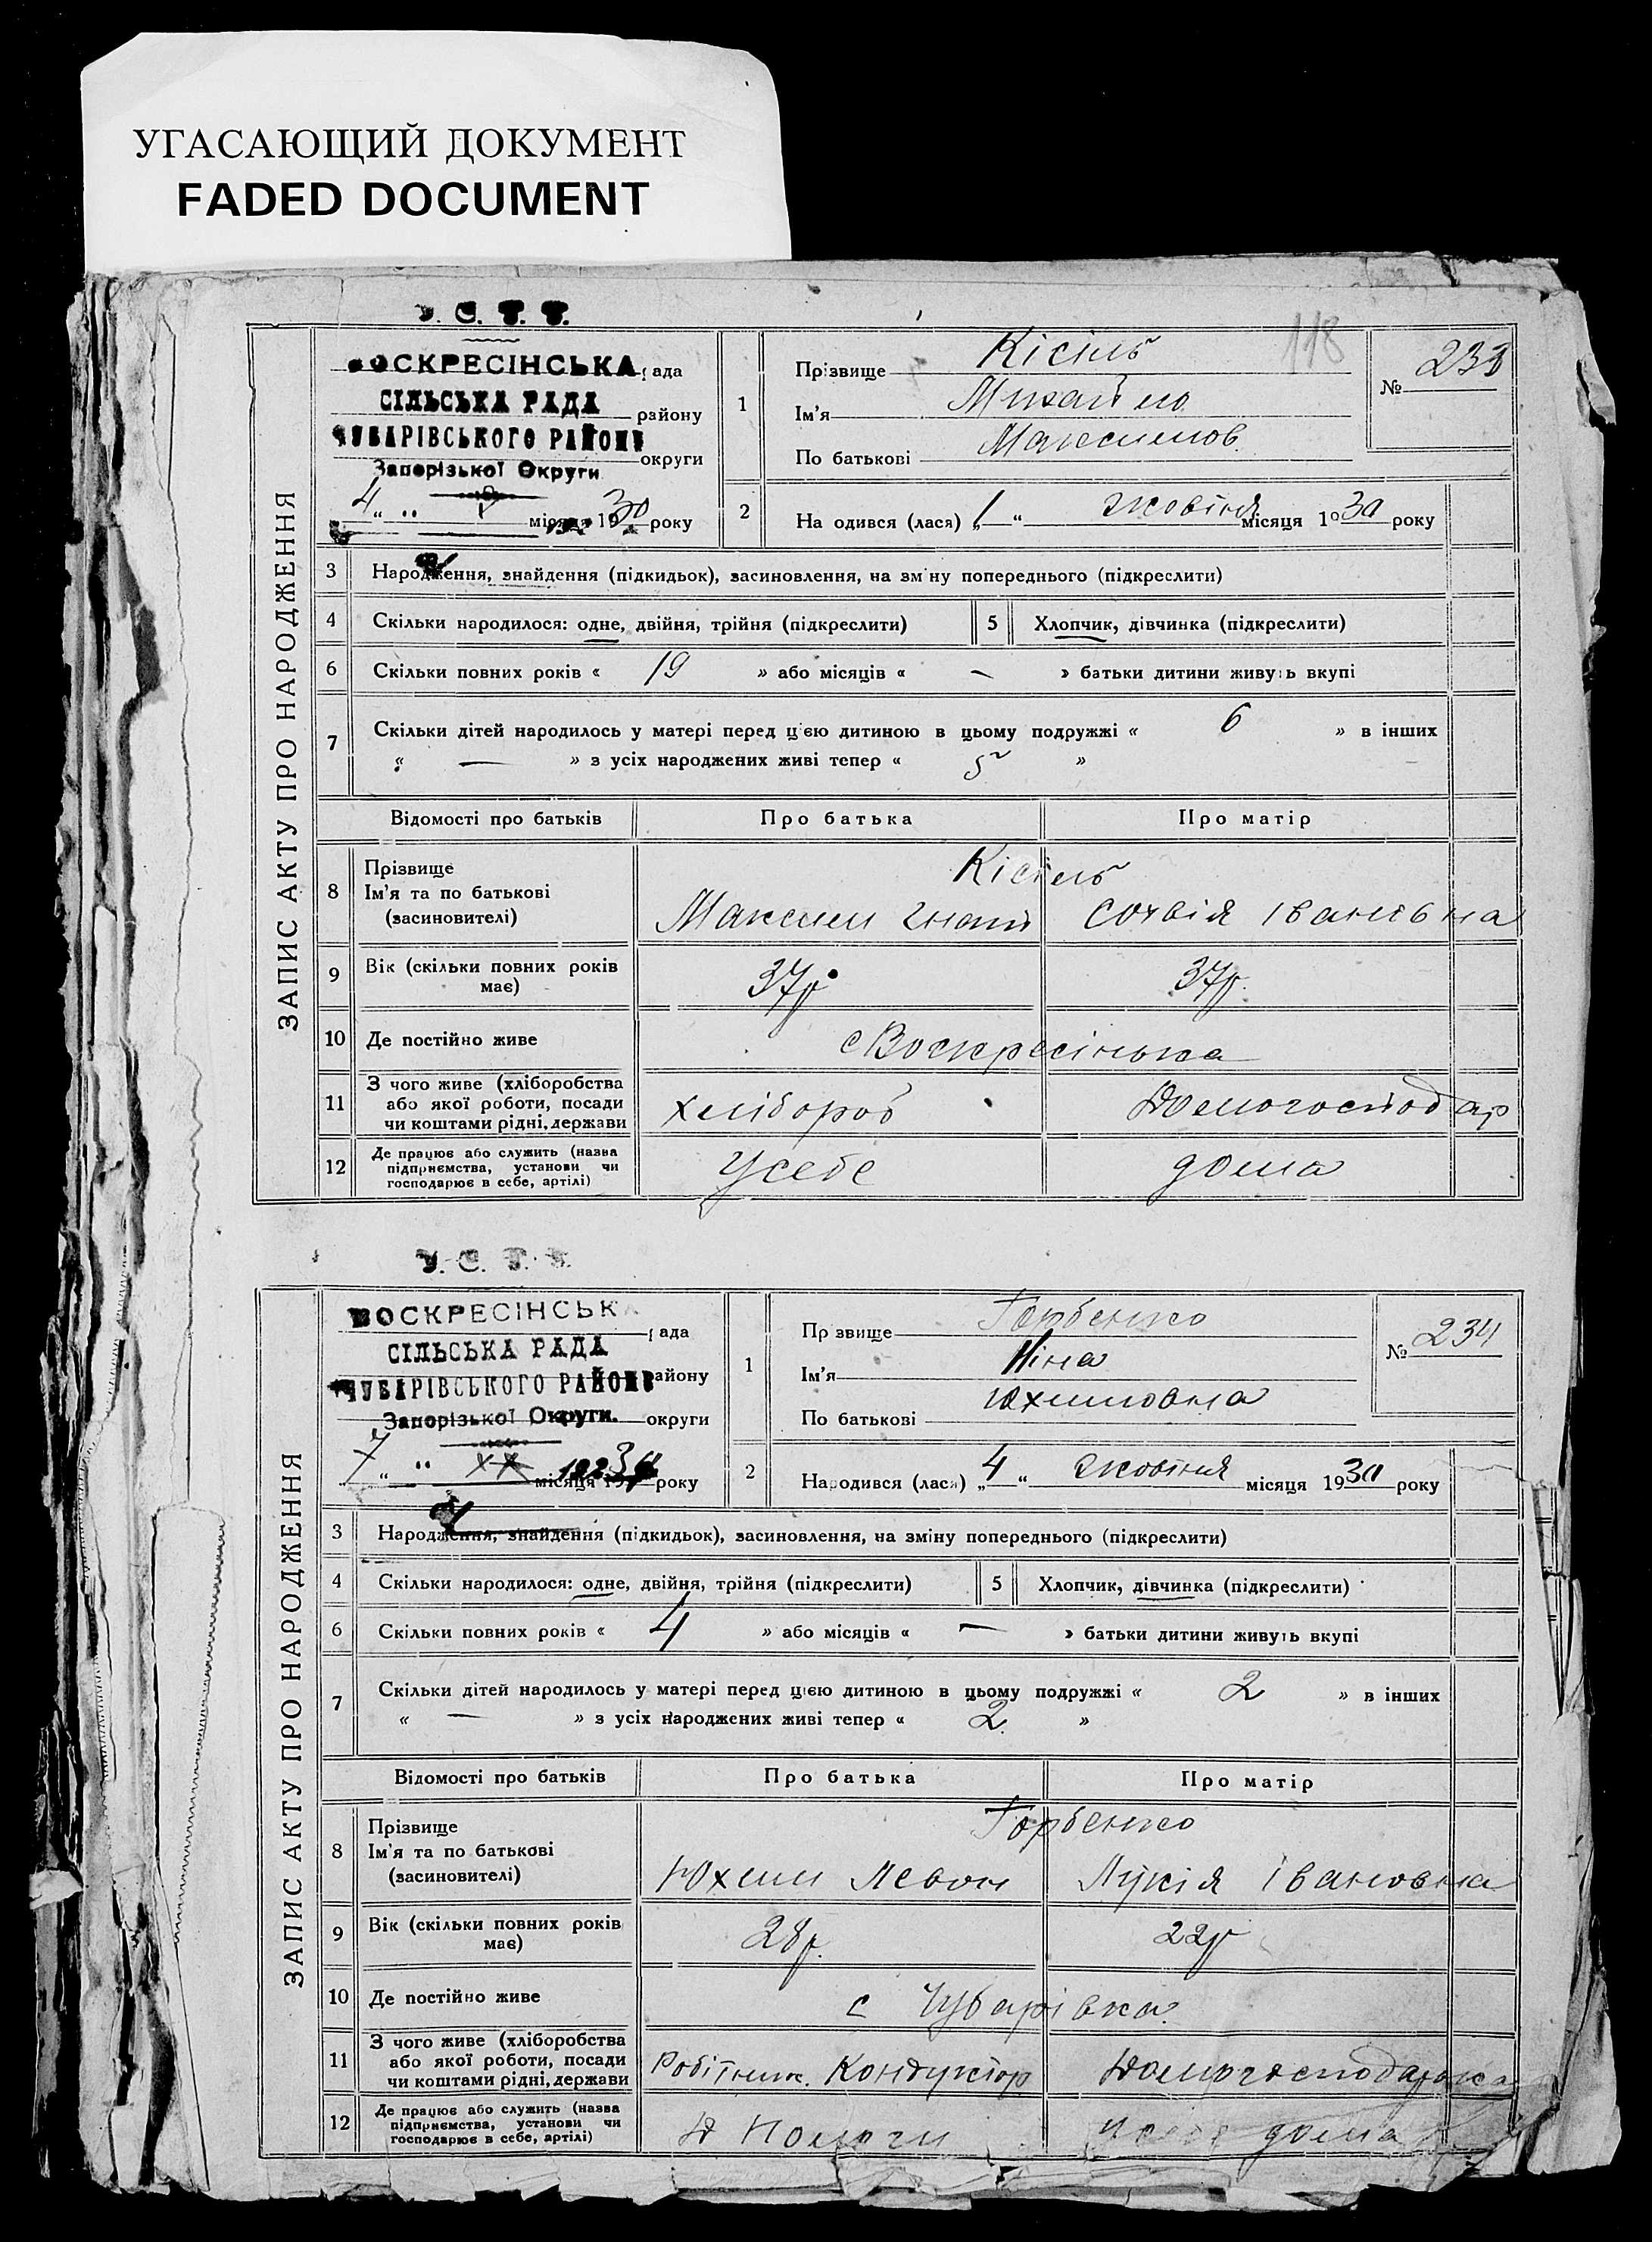 УГАСАЮЩИЙ ДОКУМЕНТ
FADED DOCUMENT
У. С. Р. Р.
118
ЗАПИС АКТУ ПРО НАРОДЖЕННЯ
ВОСКРЕСІНСЬКА рада
СІЛЬСЬКА РАДА району
ЧУБАРІВСЬКОГО РАЙОНУ
Запорізької Округи округи
4 " " X місяця 1930 року
1 Прізвище Кісіль
Ім'я Михайло
По батькові Максимов.
№ 233
2 Народився (лася) „1" жовтня місяця 1930 року
3 Народження, знайдення (підкидьок), засиновлення, на зміну попереднього (підкреслити)
4 Скільки народилося: одне, двійня, трійня (підкреслити) 5 Хлопчик, дівчинка (підкреслити)
6 Скільки повних років « 19 » або місяців « — » батьки дитини живуть вкупі
7 Скільки дітей народилось у матері перед цією дитиною в цьому подружжі « 6 » в інших
« — » з усіх народжених живі тепер « 5 »
Відомості про батьків Про батька Про матір
8 Прізвище Кісіль
Ім'я та по батькові
(засиновителі) Максим Гнат Софія Іванівна
9 Вік (скільки повних років має) 37р 37р.
10 Де постійно живе с Воскресінька
11 З чого живе (хліборобства або якої роботи, посади чи коштами рідні, держави хлібороб Домогосподар
12 Де працює або служить (назва підприємства, установи чи господарює в себе, артілі) Усебе дома
У. С. Р. Р.
ЗАПИС АКТУ ПРО НАРОДЖЕННЯ
ВОСКРЕСІНСЬКА рада
СІЛЬСЬКА РАДА
ЧУБАРІВСЬКОГО РАЙОНУ району
Запорізької Округи. округи
7 " " місяця року
1 Прізвище Горбенко
Ім'я Ніна
По батькові Юхимовна
№ 234
2 Народився (лася) „4" жовтня місяця 1930 року
3 Народження, знайдення (підкидьок), засиновлення, на зміну попереднього (підкреслити)
4 Скільки народилося: одне, двійня, трійня (підкреслити) 5 Хлопчик, дівчинка (підкреслити)
6 Скільки повних років « 4 » або місяців « — » батьки дитини живуть вкупі
7 Скільки дітей народилось у матері перед цією дитиною в цьому подружжі « 2 » в інших
« — » з усіх народжених живі тепер « 2. »
Відомості про батьків Про батька Про матір
8 Прізвище Горбенко
Ім'я та по батькові
(засиновителі) Юхим Левон Лукія Івановна
9 Вік (скільки повних років має) 28р. 22р
10 Де постійно живе с Чубарівка.
11 З чого живе (хліборобства або якої роботи, посади чи коштами рідні, держави Робітник. Кондуктор Домогосподарка
12 Де працює або служить (назва підприємства, установи чи господарює в себе, артілі) дома